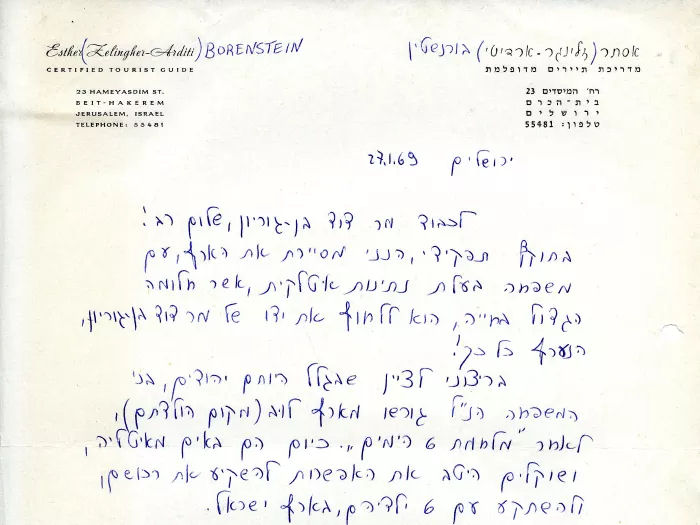 Esther (Zelingher-Arditi) BORENSTEIN
CERTIFIED TOURIST GUIDE
23 HAMEYASDIM ST.
BEIT-HAKEREM
JERUSALEM, ISRAEL
TELEPHONE: 55481
אסתר (זלינגר-ארדיטי) בורנשטין
מדריכת תיירים מדופלמת
רח' המיסדים 23
בית-הכרם
ירושלים
טלפון: 55481
ירושלים 27.1.69
לכבוד מר דוד בן-גוריון, שלום רב!
בתוקף תפקידי, הנני מסיירת את הארץ, עם
משפחה בעלת נתינות איטלקית, אשר חלומה
הגדול בחייה, הוא ללחוץ את ידו של מר דוד בן-גוריון,
הנערץ כל כך!
ברצוני לציין שבגלל היותם יהודים, בני
המשפחה הנ"ל גורשו מארץ לוב (מקום הולדתם),
לאחר "מלחמת 6 הימים". כיום הם באים מאיטליה,
ושוקלים היטב את האפשרות להשקיע את רכושם,
ולהשתקע עם 6 ילדיהם, בארץ ישראל.